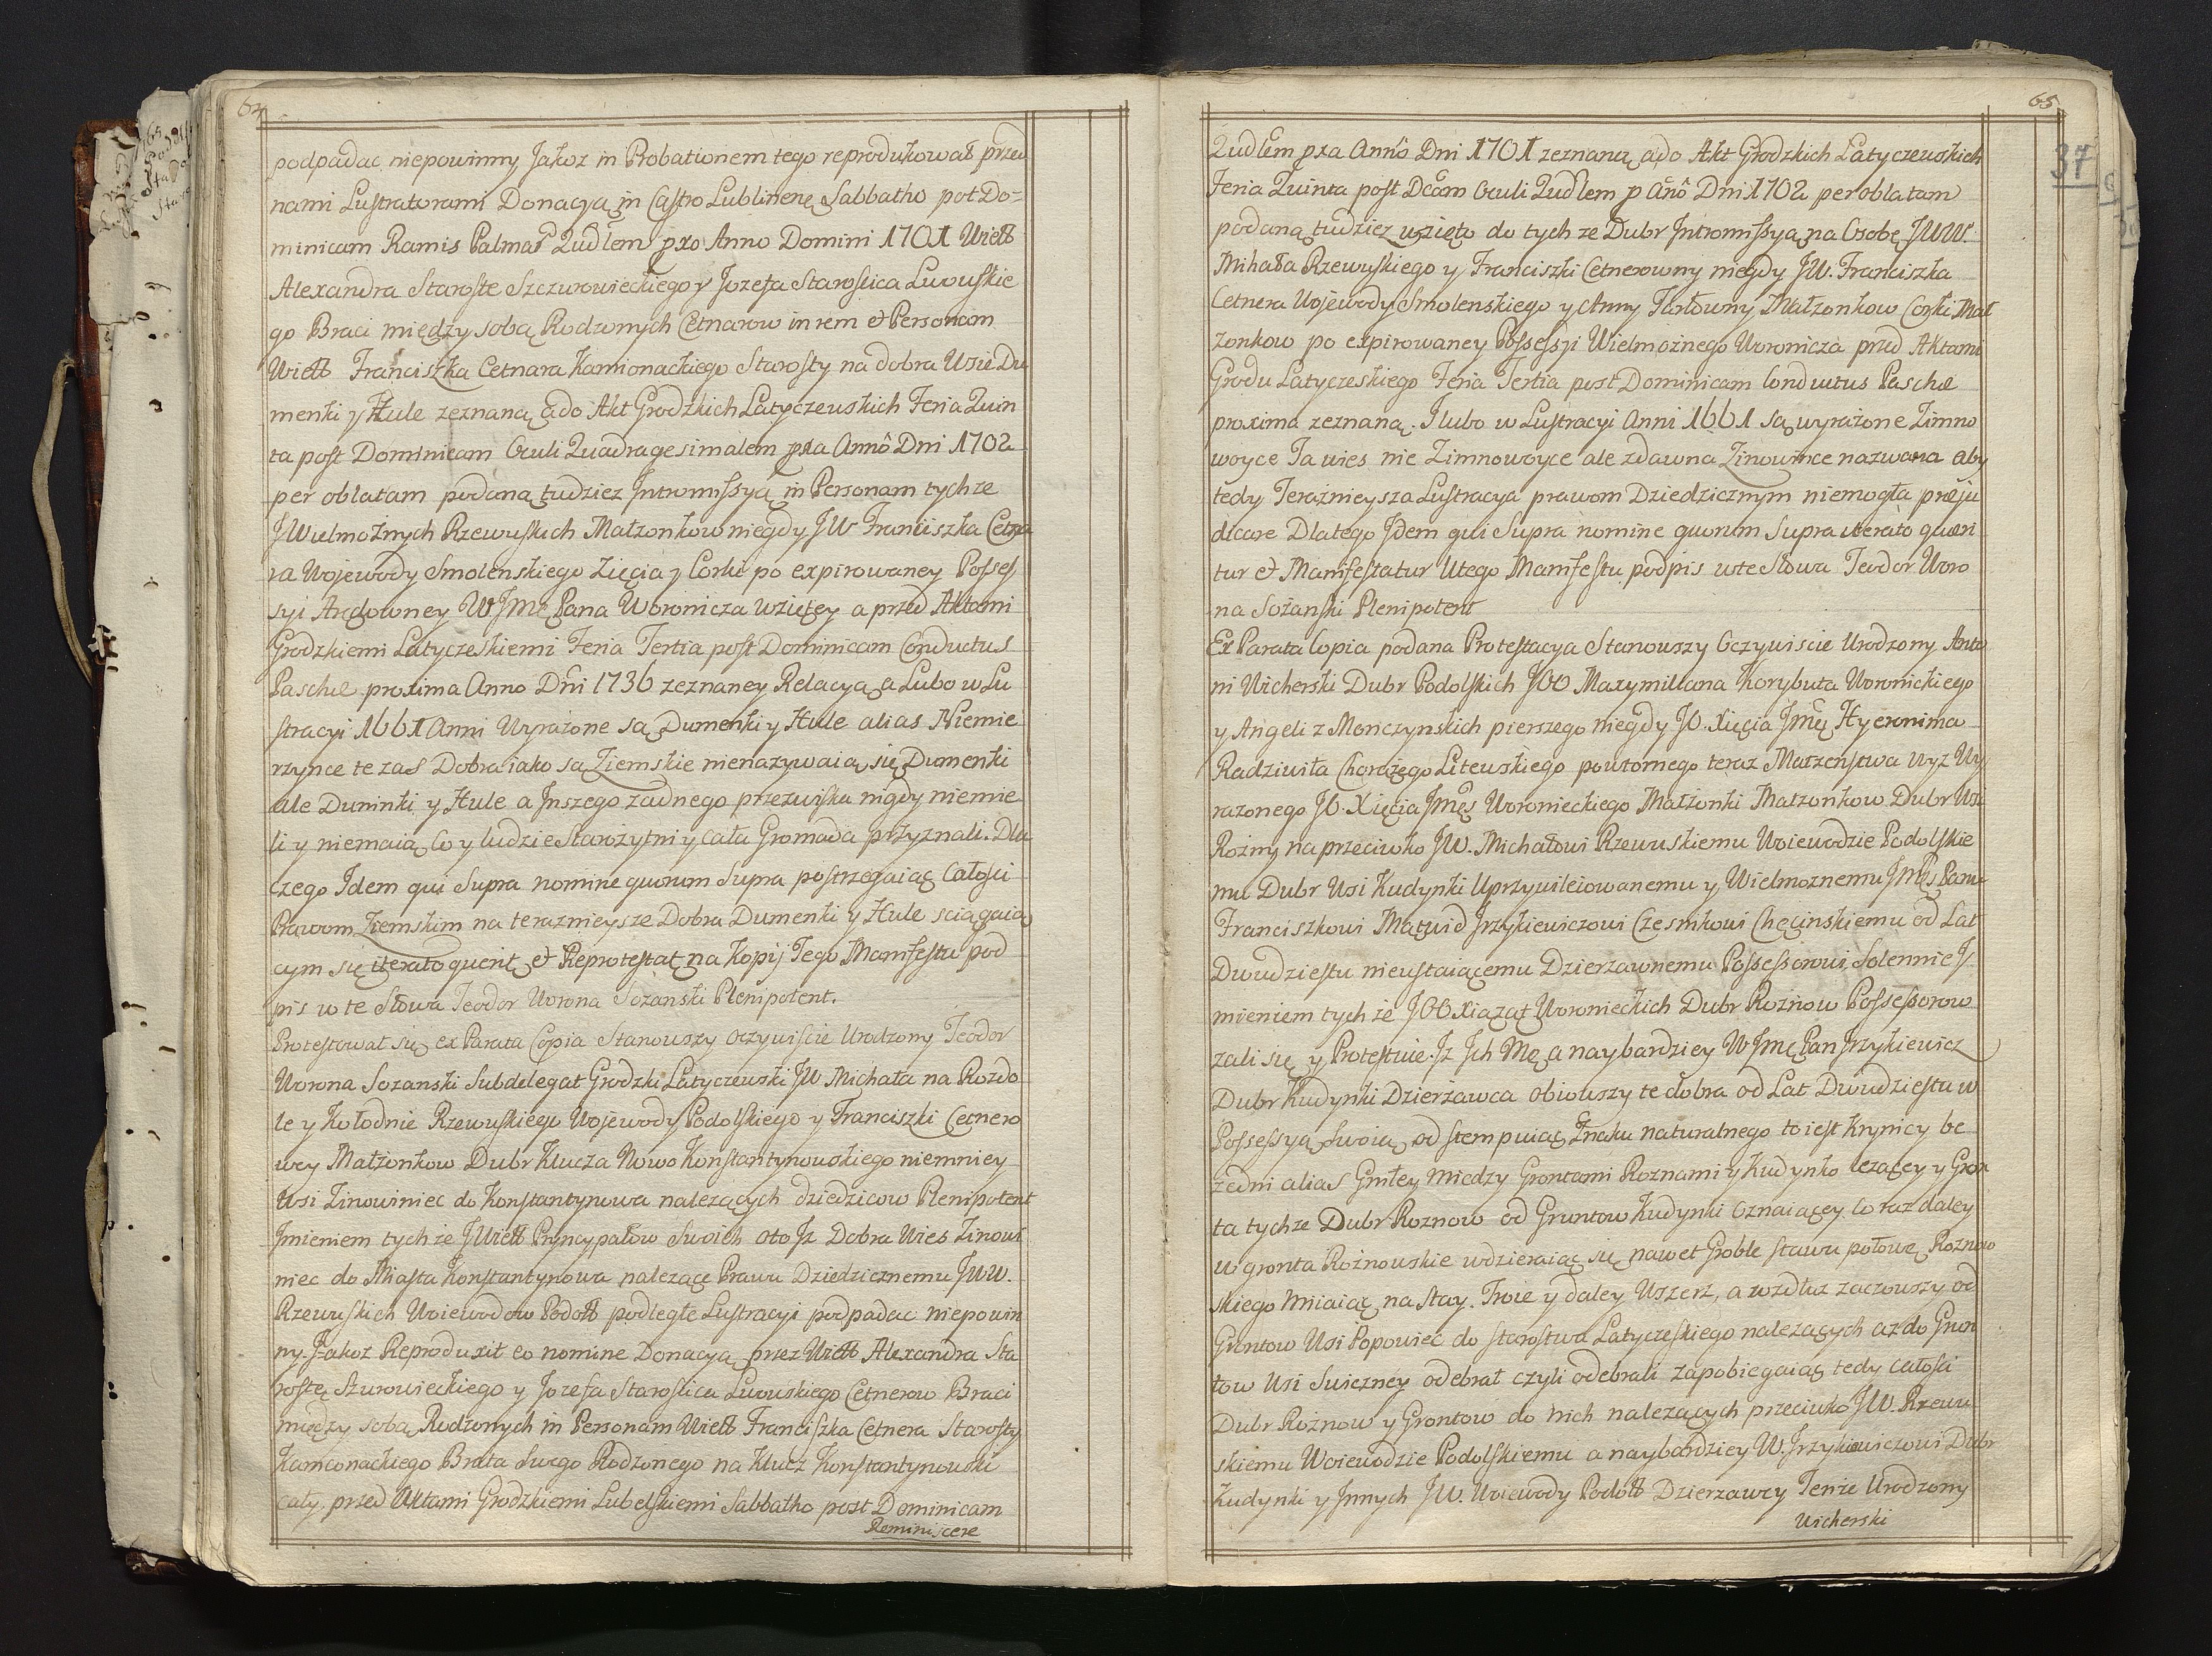 64
podpadac niepowinny Jakoz in Probationem tego reprodukował przed
nami Lustratorami Donacyą in Castro Lublinenę Sabbatho pot Do=
minicam Ramis Palmaȓ Qudlem pxo Anno Domini 1701 Wiell
Alexandra Staroste Szczurowieckiego y Jozefa Staroscica Lwuskie
go Braci między sobą Rodzonych Cetnarow in rem et Personam
Wiell Franciszka Cetnara Kamionackiego Starosty na dobra Wsie Du
menki y Hule zeznaną ado Akt Grodzkich Latyczewskich Feria Quin
ta post Dominicam Oculi Quadragesimalem pxa Annô Dni 1702
per oblatam podaną tudziez Intromissyą in Personam tychze
JWielmożnych Rzewuskich Małzonkow niegdy JW Franciszka Cetna
ra Wojewody Smolenskiego Zięcia y Corki po expirowaney Posses
syi Arędowney WJmę Pana Woronicza wziętey a przed Aktami
Grodzkiemi Latyczeskiemi Feria Tertia post Dominicam Conductus
Paschæ proxima Anno Dni 1736 zeznaney Relacyą a Lubo w Lu
stracyi 1661 Anni Wyrażone są Dumenki y Hule alias Niemie
rzynce te zas Dobra iako są Ziemskie nienazywaią się Dumenki
ale Duninki y Hule a Jnszego żadnego przezwiska nigdy niemie
li y niemaią Co y ludzie Starożytni y cała Gromada przyznali. Dla
czego Idem qui Supra nomine quorum Supra postrzegaiąc Całosci
Prawom Ziemskim na terazniejsze Dobra Dumenki y Hule sciągaią
cym się iterato querit et Reprotestat na Kopij Tego Manifestu pod
pis w te Słowa Teodor Worona Sozanski Plenipotent.
Protestował się ex Parata Copia Stanowszy oczywiscie Urodzony Teodor
Worona Sozanski Subdelegat Grodzki Latyczewski JW Michała na Rozdo
le y Kołodnie Rzewuskiego Wojewody Podolskiego y Franciszki Cetnero
wey Małżonkow Dubr Klucza Nowo Konstantynowskiego niemniey
Wsi Zinowiniec do Konstantynowa nalezących dziedzicow Plenipotent
Jmieniem tych że JWiell Pryncypałow Swoich oto Jż Dobra Wies Zinowi
niec do Miasta Konstantynowa nalezące Prawu Dziedzicznemu JWW.
Rzewuskich Woiewodow Podoll podległe Lustracyi podpadac niepowin
ny. Jakoz Reproduxit eo nomine Donacyą przez Wiell Alexandra Sta
rostę Szurowieckiego y Jozefa Staroscica Lwuskiego Cetnerow Braci
między sobą Rodzonych in Personam Wiell Franciszka Cetnera Starosty
Kamconackiego Brata Swego Rodzonego na Klucz Konstantynowski
cały, przed Aktami Grodzkiemi Lubelskiemi Sabbatho post Dominicam
Reminiscere
65
37
Qudlem pxa Annô Dni 1701 zeznaną ado Akt Grodzkich Latyczewskich
Feria Quinta post Dcâm Oculi Qudlem p Añô Dni 1702 per oblatam
podaną tudziez wzięto do tych ze Dubr Intromissyą na Osobę JWW.
Mihała Rzewuskiego y Franciszki Cetnerowny niegdy JW. Franciszka
Cetnera Wojewody Smolenskiego y Anny Tarłowny Małzonkow Corki Mał
żonkow po expirowaney Possessyi Wielmożnego Woronicza przed Aktami
Grodu Latyczeskiego Feria Tertia post Dominicam Conductus Paschæ
proxima zeznaną. I lubo w Lustracyi Anni 1661 są wyrażone Zimno
woyce Ta wies nie Zimnowoyce ale zdawna Zinowince nazwana aby
tedy Teraźnieysza Lustracya prawom Dziedzicznym niemogła præju
dicare Dlatego Idem qui Supra nomine quorum Supra iterato quæri
tur et Manifestatur Utego Manifestu podpis wte Słowa Teodor Woro
na Sożanski Plenipotent
Ex Parata Copia podana Protestacya Stanowszy Oczywiscie Urodzony Anto
ni Wicherski Dubr Podolskich JOO Maxymiliana Korybuta Woronickiego
y Angeli z Męnczynskich pierszego niegdy JO. Xięcia Jmę Hyeronima
Radziwiła Chorążego Litewskiego powtornego teraz Małzenstwa wyz Wy
rażonego JO. Xięcia Jmęs Woronieckiego Małżonki Małzonkow Dubr Wsi
Rożny na przeciwko JW. Michałowi Rzewuskiemu Woiewodzie Podolskie
mu Dubr Wsi Kudynki Uprzywileiowanemu y Wielmoznemu JMęs Panu
Franciszkowi Matwid Jrzykiewiczowi Czesnikowi Chęcinskiemu od Lat
Dwudziestu nieustaiącemu Dzierzawnemu Possessorowi Solennie J
mieniem tych że JOO Xiaząt Woronieckich Dubr Roznow Possessorow
zali się y Protestuie. Jż Jch Mę a naybardziey WJmę Pan Jrzykiewicz
Dubr Kudynki Dzierżawca obiowszy te dobra od Lat Dwudziestu w
Possessyą Swoią od stempuiąc Znaku naturalnego to iest Krynicy be
zedni alias Gniłey Miedzy Grontami Roznami y Kudynko lezącey y Gron
ta tychze Dubr Roznow od Gruntow Kudynki Oznaiącey co raz daley
w gronta Rożnowskie wdzieraiąc się nawet Groble stawu połowę Roznow
skiego Mniaiąc na stay. Troie y daley Wszerż, a wzdłuz zaczowszy od
Gruntow Wsi Popowiec do starostwa Latyczeskiego nalezących az do Gron
tow Wsi Swiezney odebrał czyli odebrali zapobiegaiąc tedy całosci
Dubr Rożnow y Grontow do nich nalezących przeciwko JW. Rzewu
skiemu Woiewodzie Podolskiemu a naybardziey W. Jrzykiewiczowi Dubr
Kudynki y Jnnych JW. Woiewody Podoll Dzierzawcy Tenże Urodzony
Wicherski